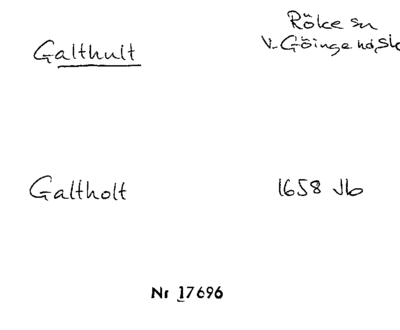 Galthult
Röke sn
V. Göinge hd, Sk
Galtholt
1658 Jb
Nr 17696